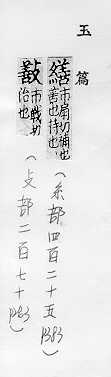 玉篇
繕 市扇切補也
善也持也
(糸部四百二十五
敾 市戰切
治也
(攴部二百七十